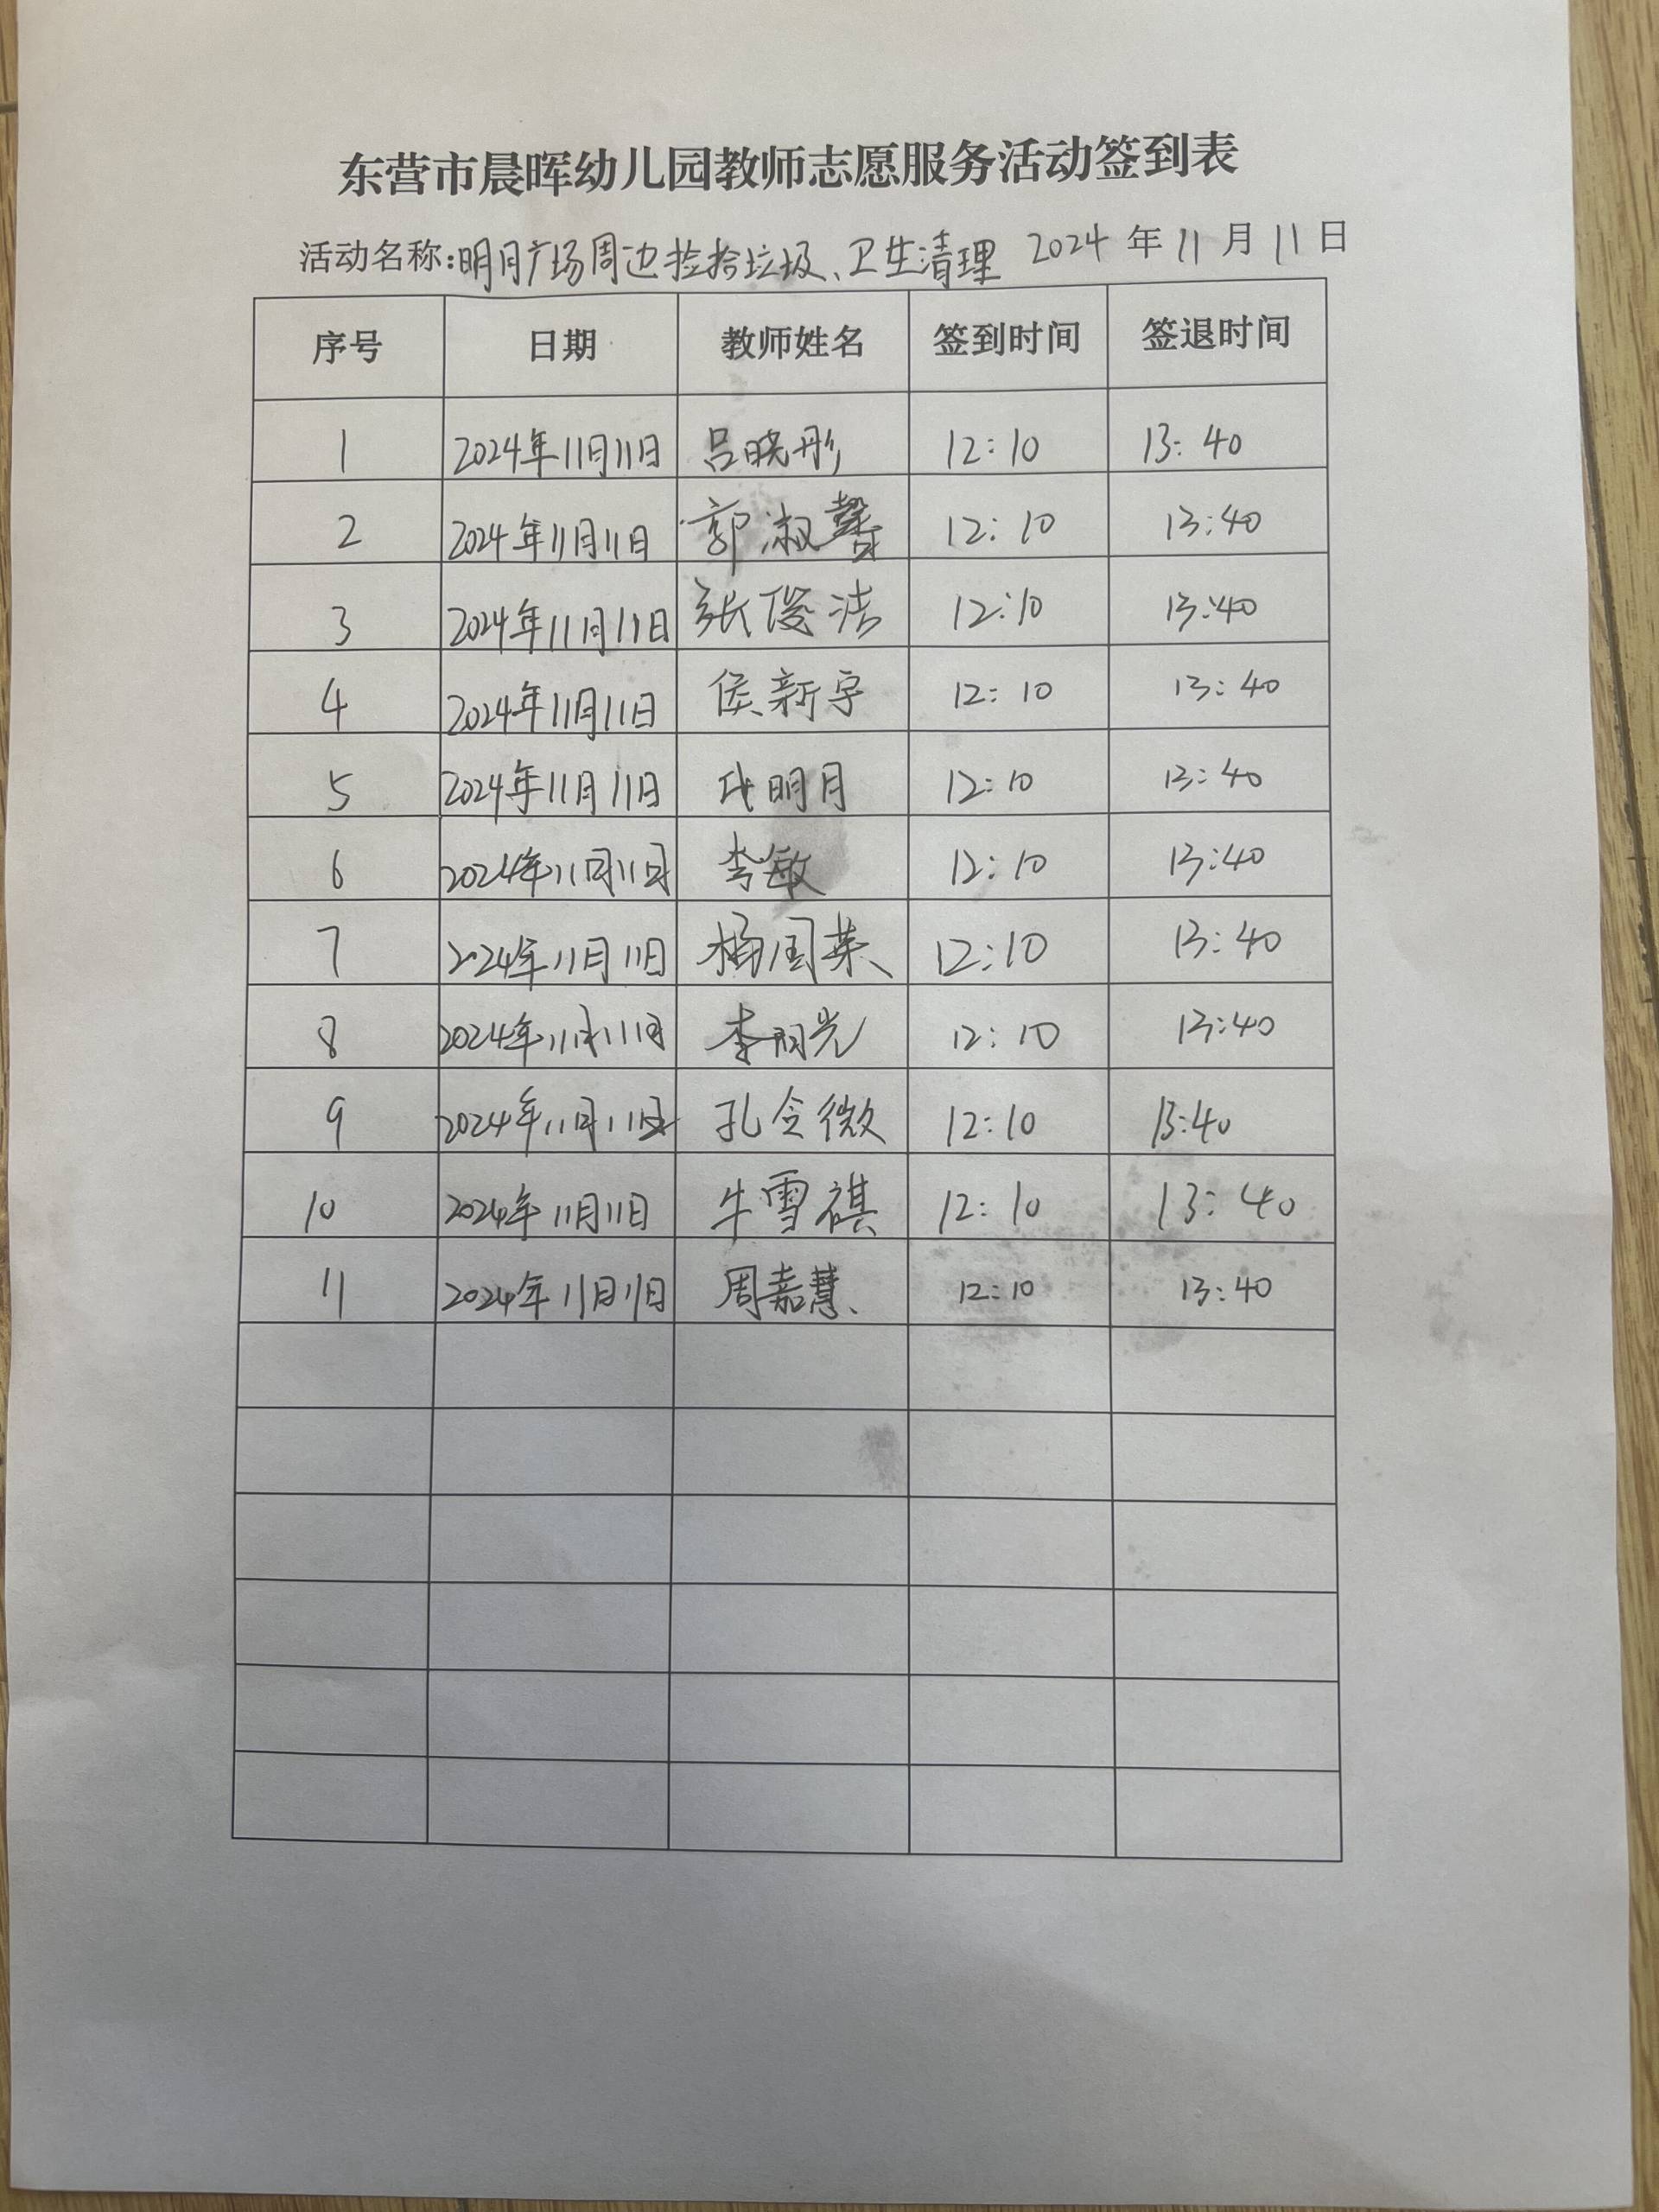 东营市晨晖幼儿园教师志愿服务活动签到表
活动名称:明月广场周边捡拾垃圾、卫生清理 2024 年 11 月 11 日
序号 日期 教师姓名 签到时间 签退时间
1 2024年11月11日 吕晓彤 12:10 13:40
2 2024年11月11日 郭淑馨 12:10 13:40
3 2024年11月11日 张俊洁 12:10 13:40
4 2024年11月11日 侯新宇 12:10 13:40
5 2024年11月11日 明月 12:10 13:40
6 2024年11月11日 李敏 12:10 13:40
7 2024年11月11日 杨国英 12:10 13:40
8 2024年11月11日 李明光 12:10 13:40
9 2024年11月11日 孔令微 12:10 13:40
10 2024年11月11日 牛雪祺 12:10 13:40
11 2024年11月11日 周嘉慧 12:10 13:40